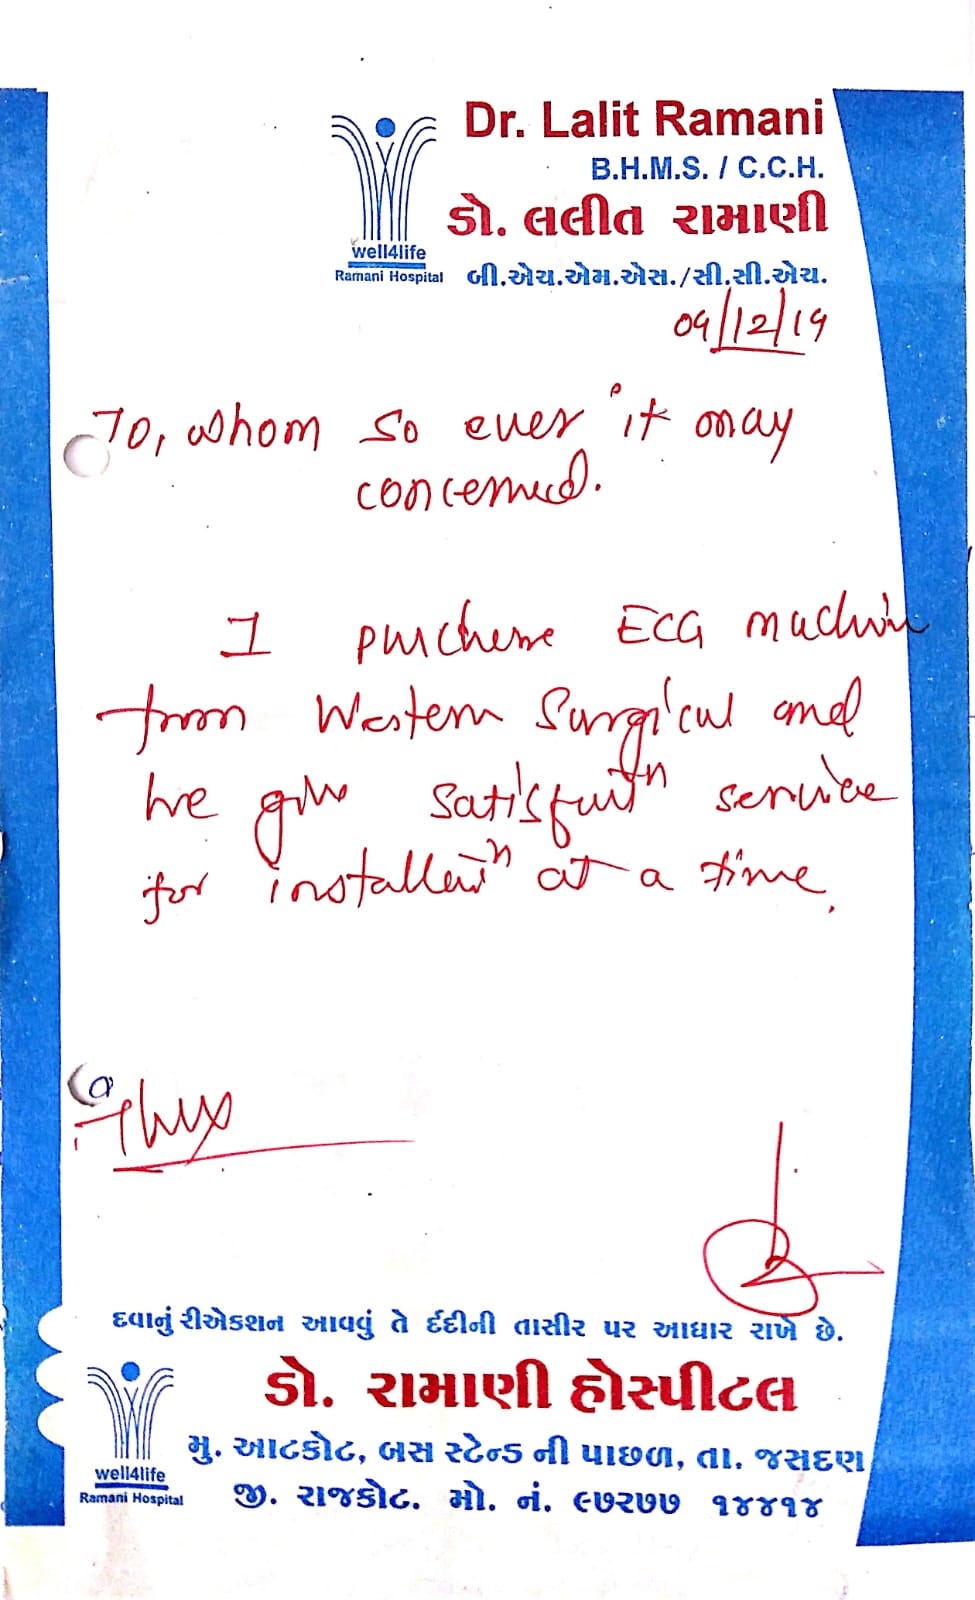 Dr. Lalit Ramani
B.H.M.S. / C.C.H.
ડો. લલીત રામાણી
બી.એચ.એમ.એસ./સી.સી.એચ.
well4life
Ramani Hospital
09/12/19
To, whom so ever it may
concerned.
I purchese ECG machin
from Western Surgical and
he give satisfactn service
for installeatn at a time.
Thnx
દવાનું રીએકશન આવવું તે દર્દીની તાસીર પર આધાર રાખે છે.
ડો. રામાણી હોસ્પીટલ
મુ. આટકોટ, બસ સ્ટેન્ડ ની પાછળ, તા. જસદણ
જી. રાજકોટ. મો. નં. ૯૭૨૭૭ ૧૪૪૧૪
well4life
Ramani Hospital